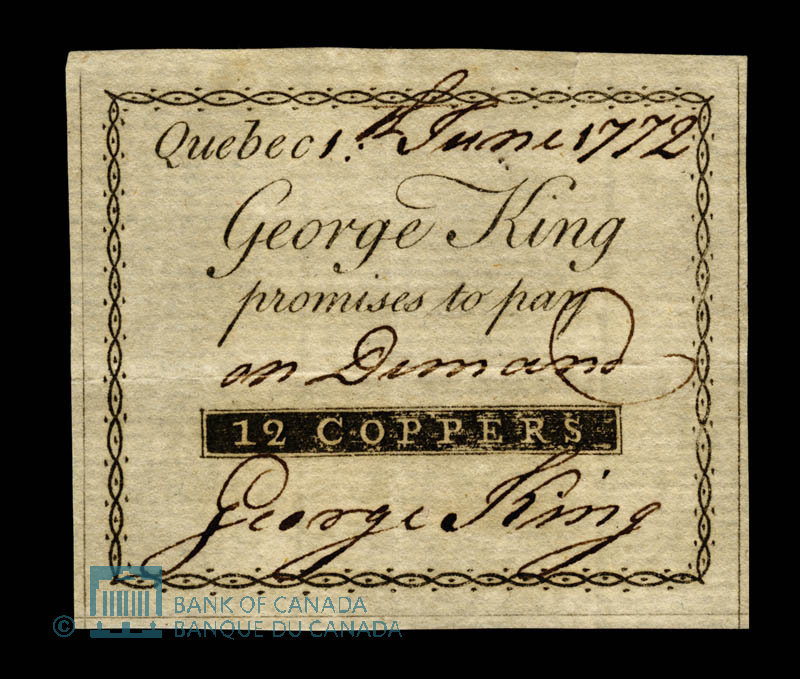 Quebec 1.th June 1772
George King
promises to pay
on Demand
12 COPPERS
George King
© BANK OF CANADA
BANQUE DU CANADA